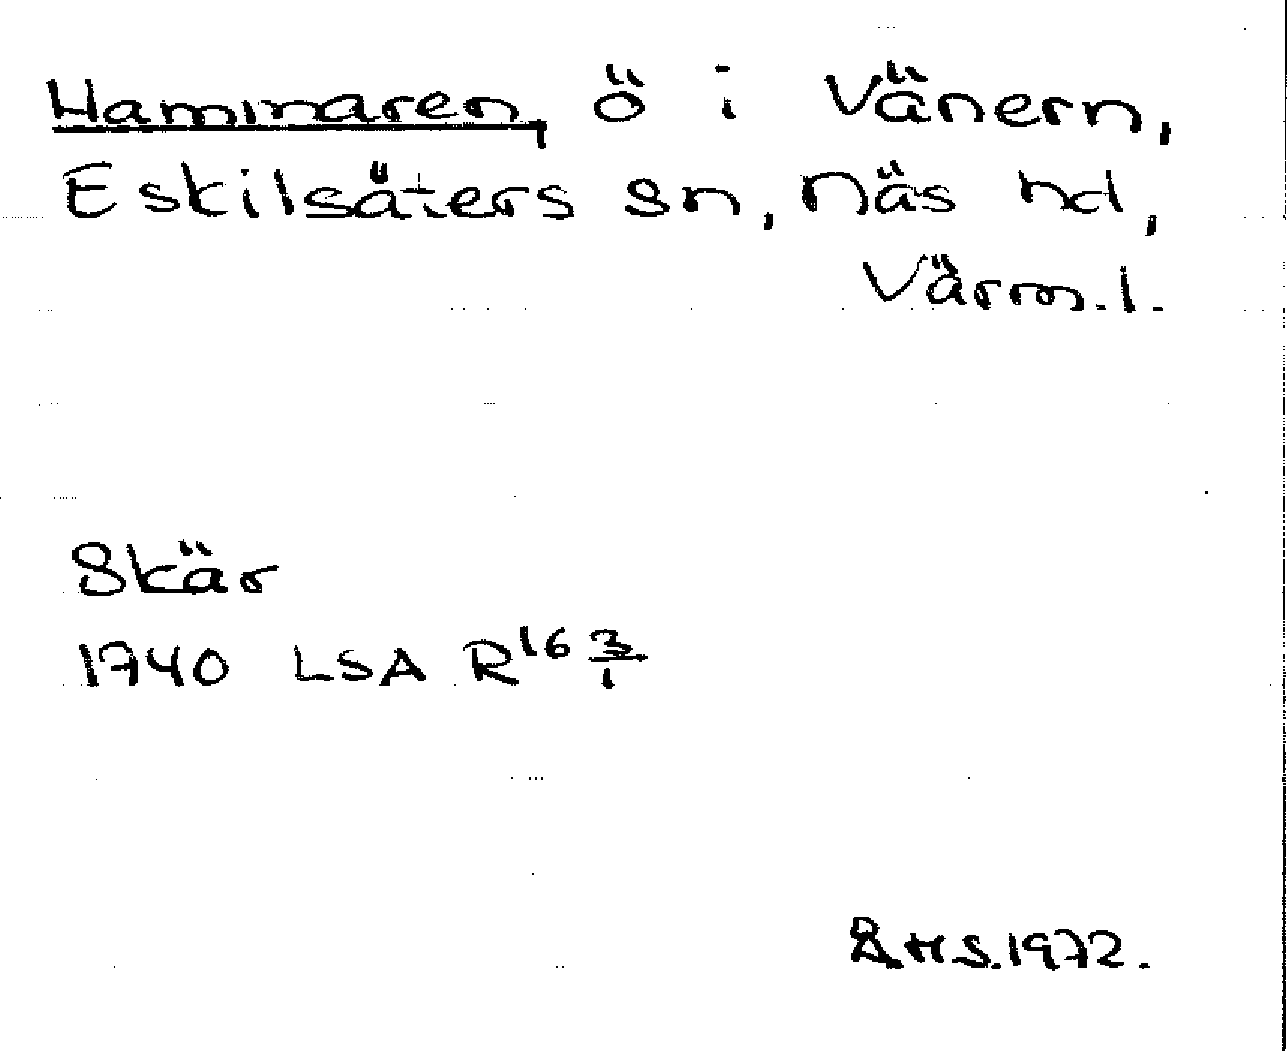 Hammaren, ö i Vänern,
Eskilsäters sn, Näs hd,
Värml.
Skär
1740 LSA R16 3/1
Å.H.S. 1972.